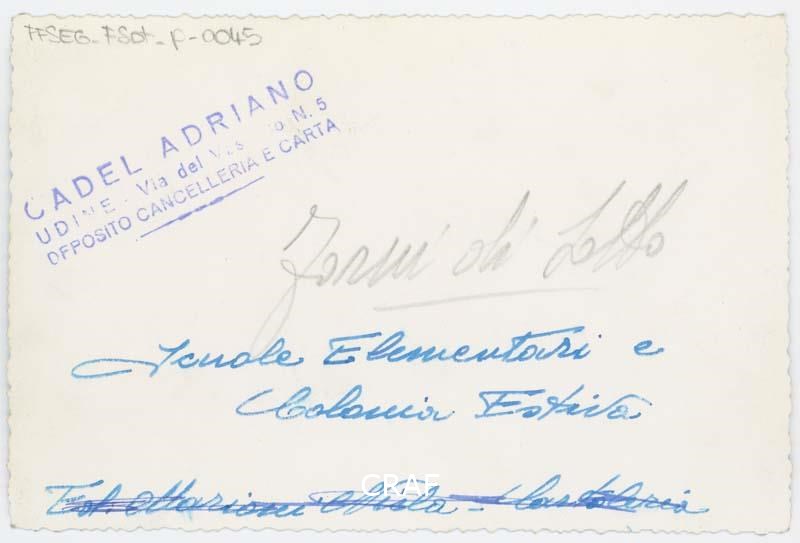 FFSEG-FSot-p-0045
CADEL ADRIANO
UDINE - Via del N. 5
DEPOSITO CANCELLERIA E CARTA
Forni di Sotto
Scuole Elementari e
Colonia Estiva
CRAF
Cartoleria